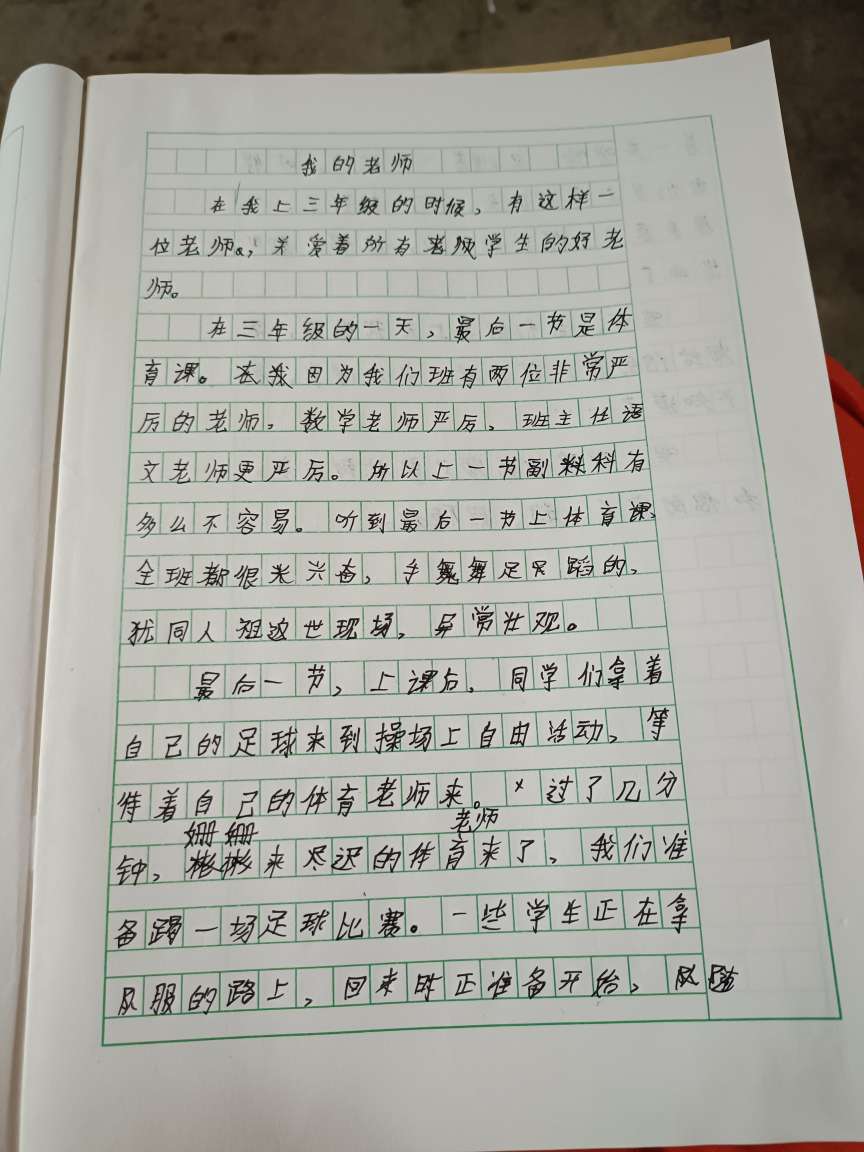 我的老师
在我上三年级的时候，有这样一
位老师，关爱着所有学生的好老
师。
在三年级的一天，最后一节是体
育课。我因为我们班有两位非常严
厉的老师，数学老师严厉，班主任语
文老师更严厉。所以上一节副科有
多么不容易。听到最后一节上体育课，
全班都很兴奋，手舞足蹈的，
犹同人祖这世现场，异常壮观。
最后一节，上课后，同学们拿着
自己的足球来到操场上自由活动，等
待着自己的体育老师来。过了几分
钟，姗姗来迟的体育老师来了，我们准
备踢一场足球比赛。一些学生正在拿
队服的路上，回来时正准备开始，队